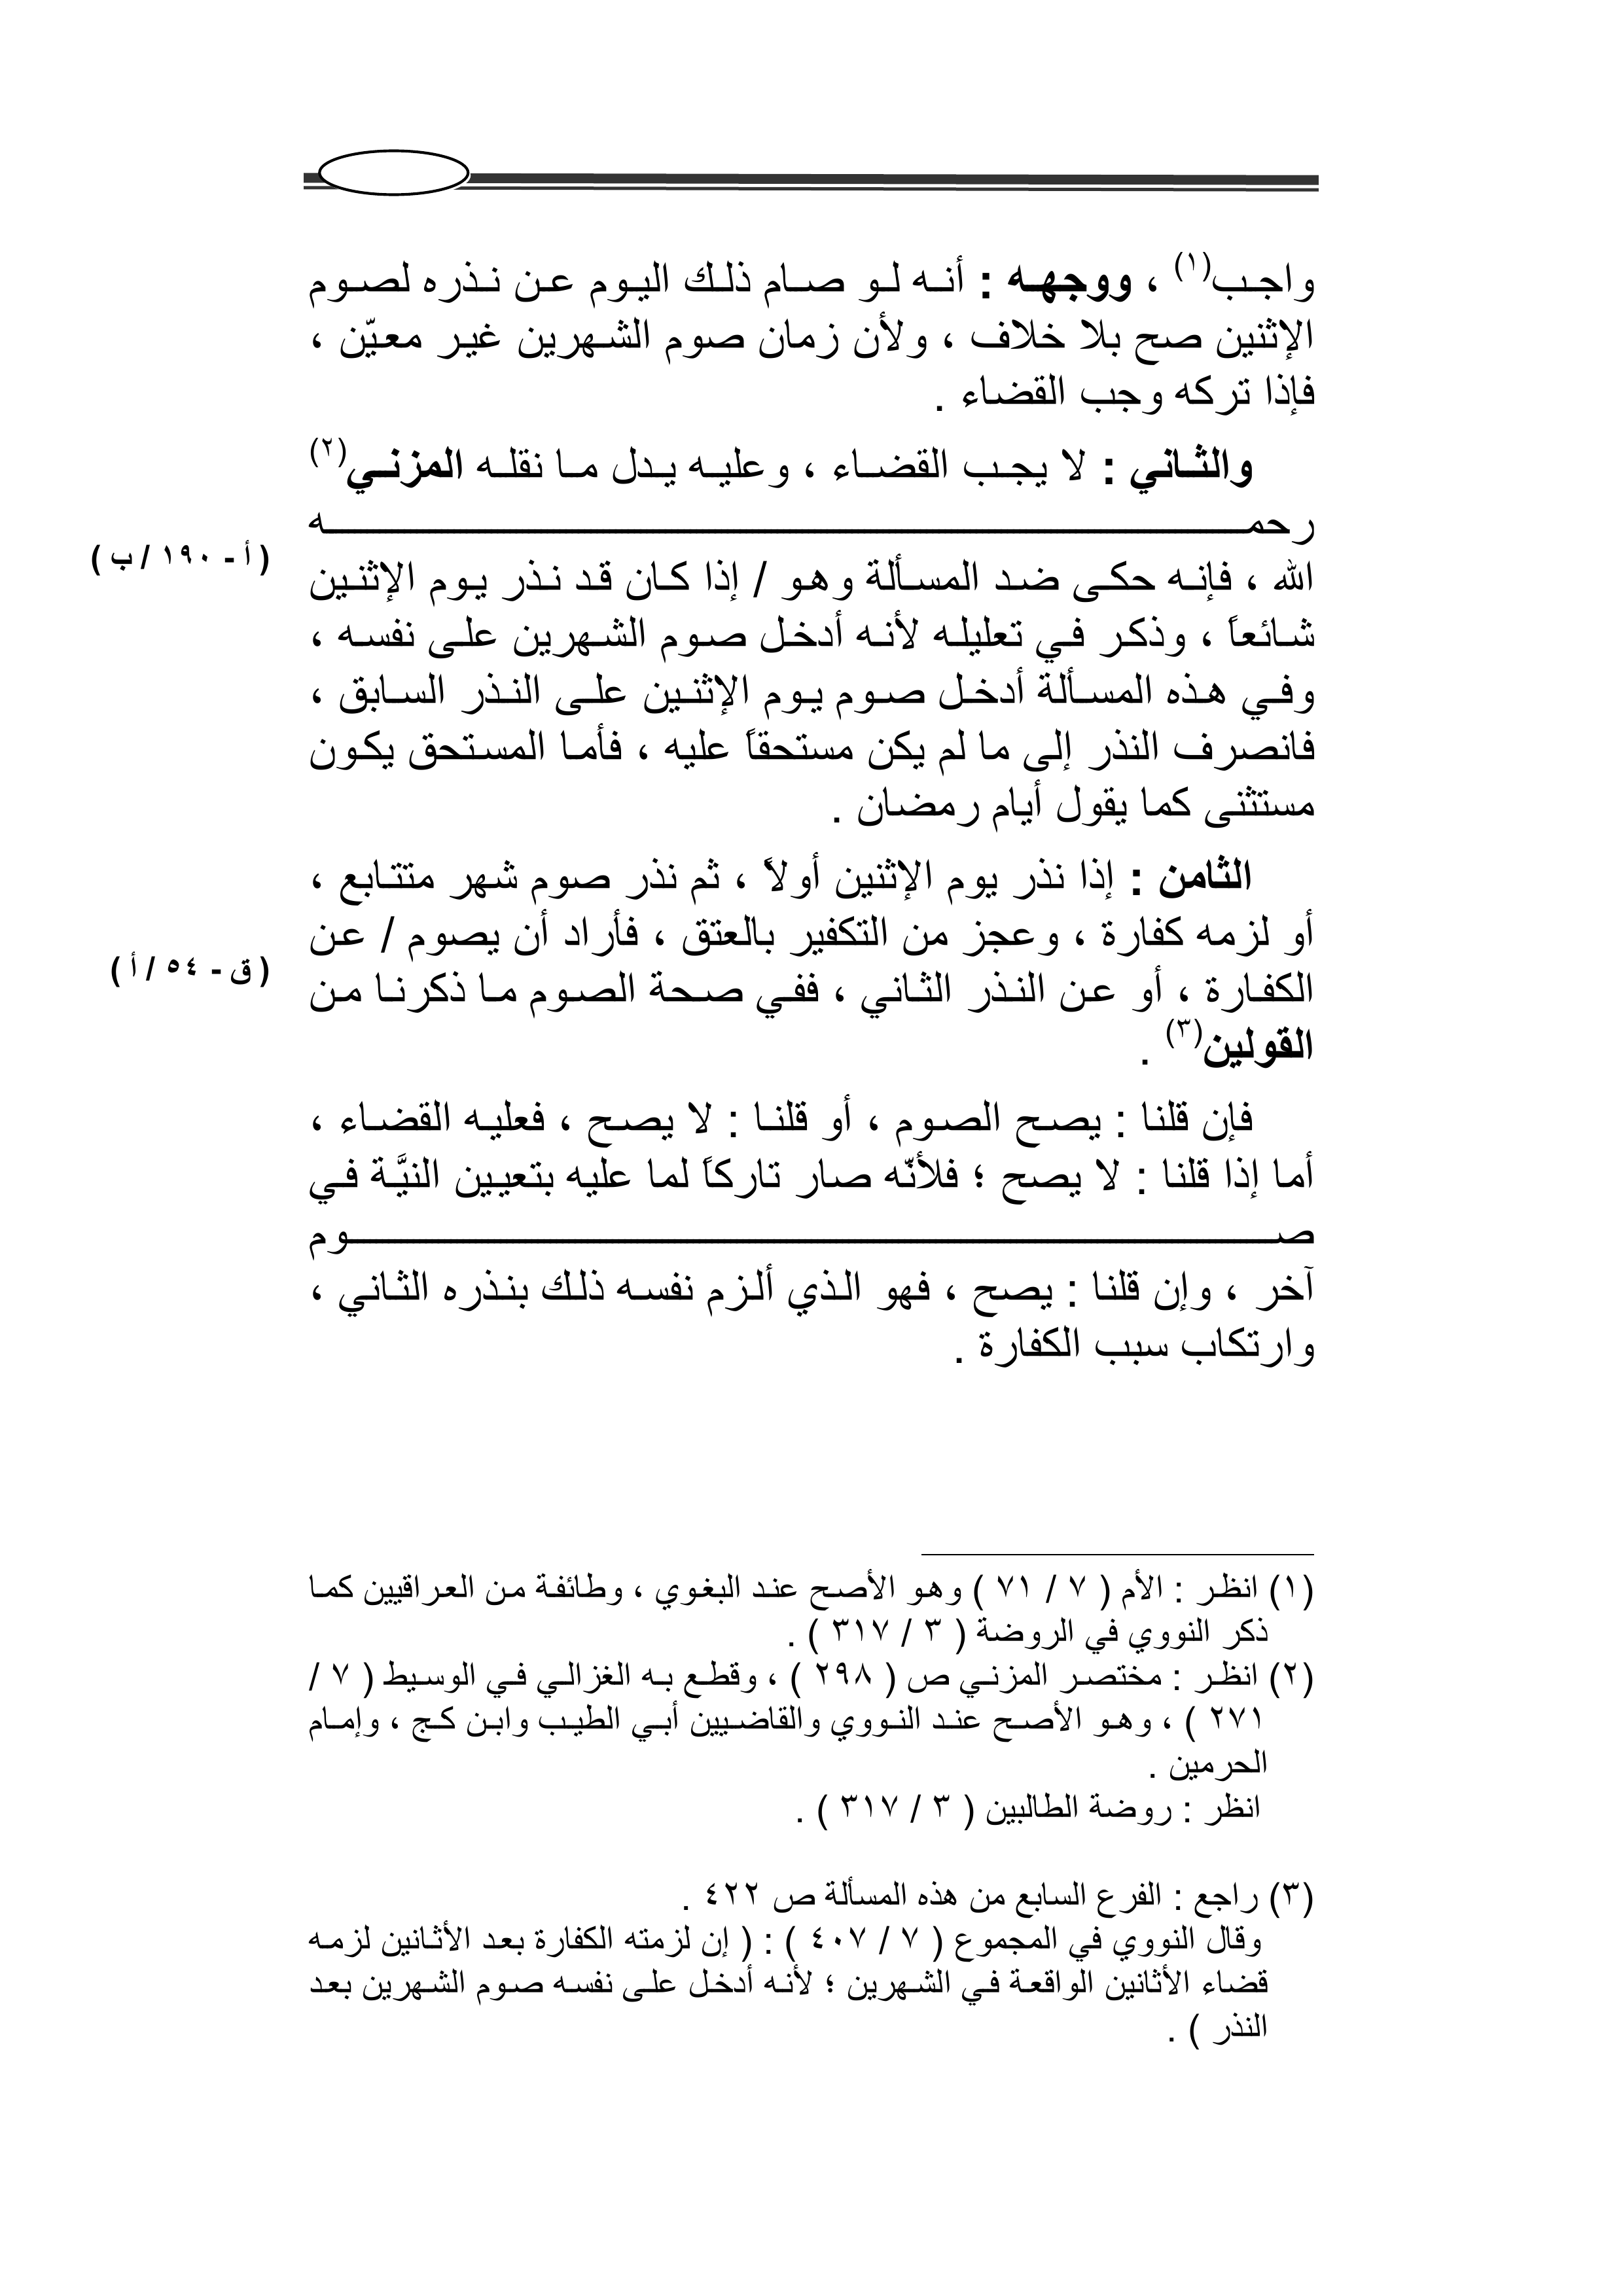 واجب(١) ، ووجهه : أنه لو صام ذلك اليوم عن نذره لصوم
الإثنين صح بلا خلاف ، ولأن زمان صوم الشهرين غير معيّن ،
فإذا تركه وجب القضاء .
والثاني : لا يجب القضاء ، وعليه يدل ما نقله المزني(٢)
رحمه
الله ، فإنه حكى ضد المسألة وهو / إذا كان قد نذر يوم الإثنين
( أ - ١٩٠ / ب )
شائعاً ، وذكر في تعليله لأنه أدخل صوم الشهرين على نفسه ،
وفي هذه المسألة أدخل صوم يوم الإثنين على النذر السابق ،
فانصرف النذر إلى ما لم يكن مستحقاً عليه ، فأما المستحق يكون
مستثنى كما يقول أيام رمضان .
الثامن : إذا نذر يوم الإثنين أولاً ، ثم نذر صوم شهر متتابع ،
أو لزمه كفارة ، وعجز من التكفير بالعتق ، فأراد أن يصوم / عن
( ق - ٥٤ / أ )
الكفارة ، أو عن النذر الثاني ، ففي صحة الصوم ما ذكرنا من
القولين(٣) .
فإن قلنا : يصح الصوم ، أو قلنا : لا يصح ، فعليه القضاء ،
أما إذا قلنا : لا يصح ؛ فلأنّه صار تاركاً لما عليه بتعيين النيَّة في
صوم
آخر ، وإن قلنا : يصح ، فهو الذي ألزم نفسه ذلك بنذره الثاني ،
وارتكاب سبب الكفارة .
(١) انظر : الأم ( ٧ / ٧١ ) وهو الأصح عند البغوي ، وطائفة من العراقيين كما
ذكر النووي في الروضة ( ٣ / ٣١٧ ) .
(٢) انظر : مختصر المزني ص ( ٢٩٨ ) ، وقطع به الغزالي في الوسيط ( ٧ /
٢٧١ ) ، وهو الأصح عند النووي والقاضيين أبي الطيب وابن كج ، وإمام
الحرمين .
انظر : روضة الطالبين ( ٣ / ٣١٧ ) .
(٣) راجع : الفرع السابع من هذه المسألة ص ٤٢٢ .
وقال النووي في المجموع ( ٧ / ٤٠٧ ) : ( إن لزمته الكفارة بعد الأثانين لزمه
قضاء الأثانين الواقعة في الشهرين ؛ لأنه أدخل على نفسه صوم الشهرين بعد
النذر ) .